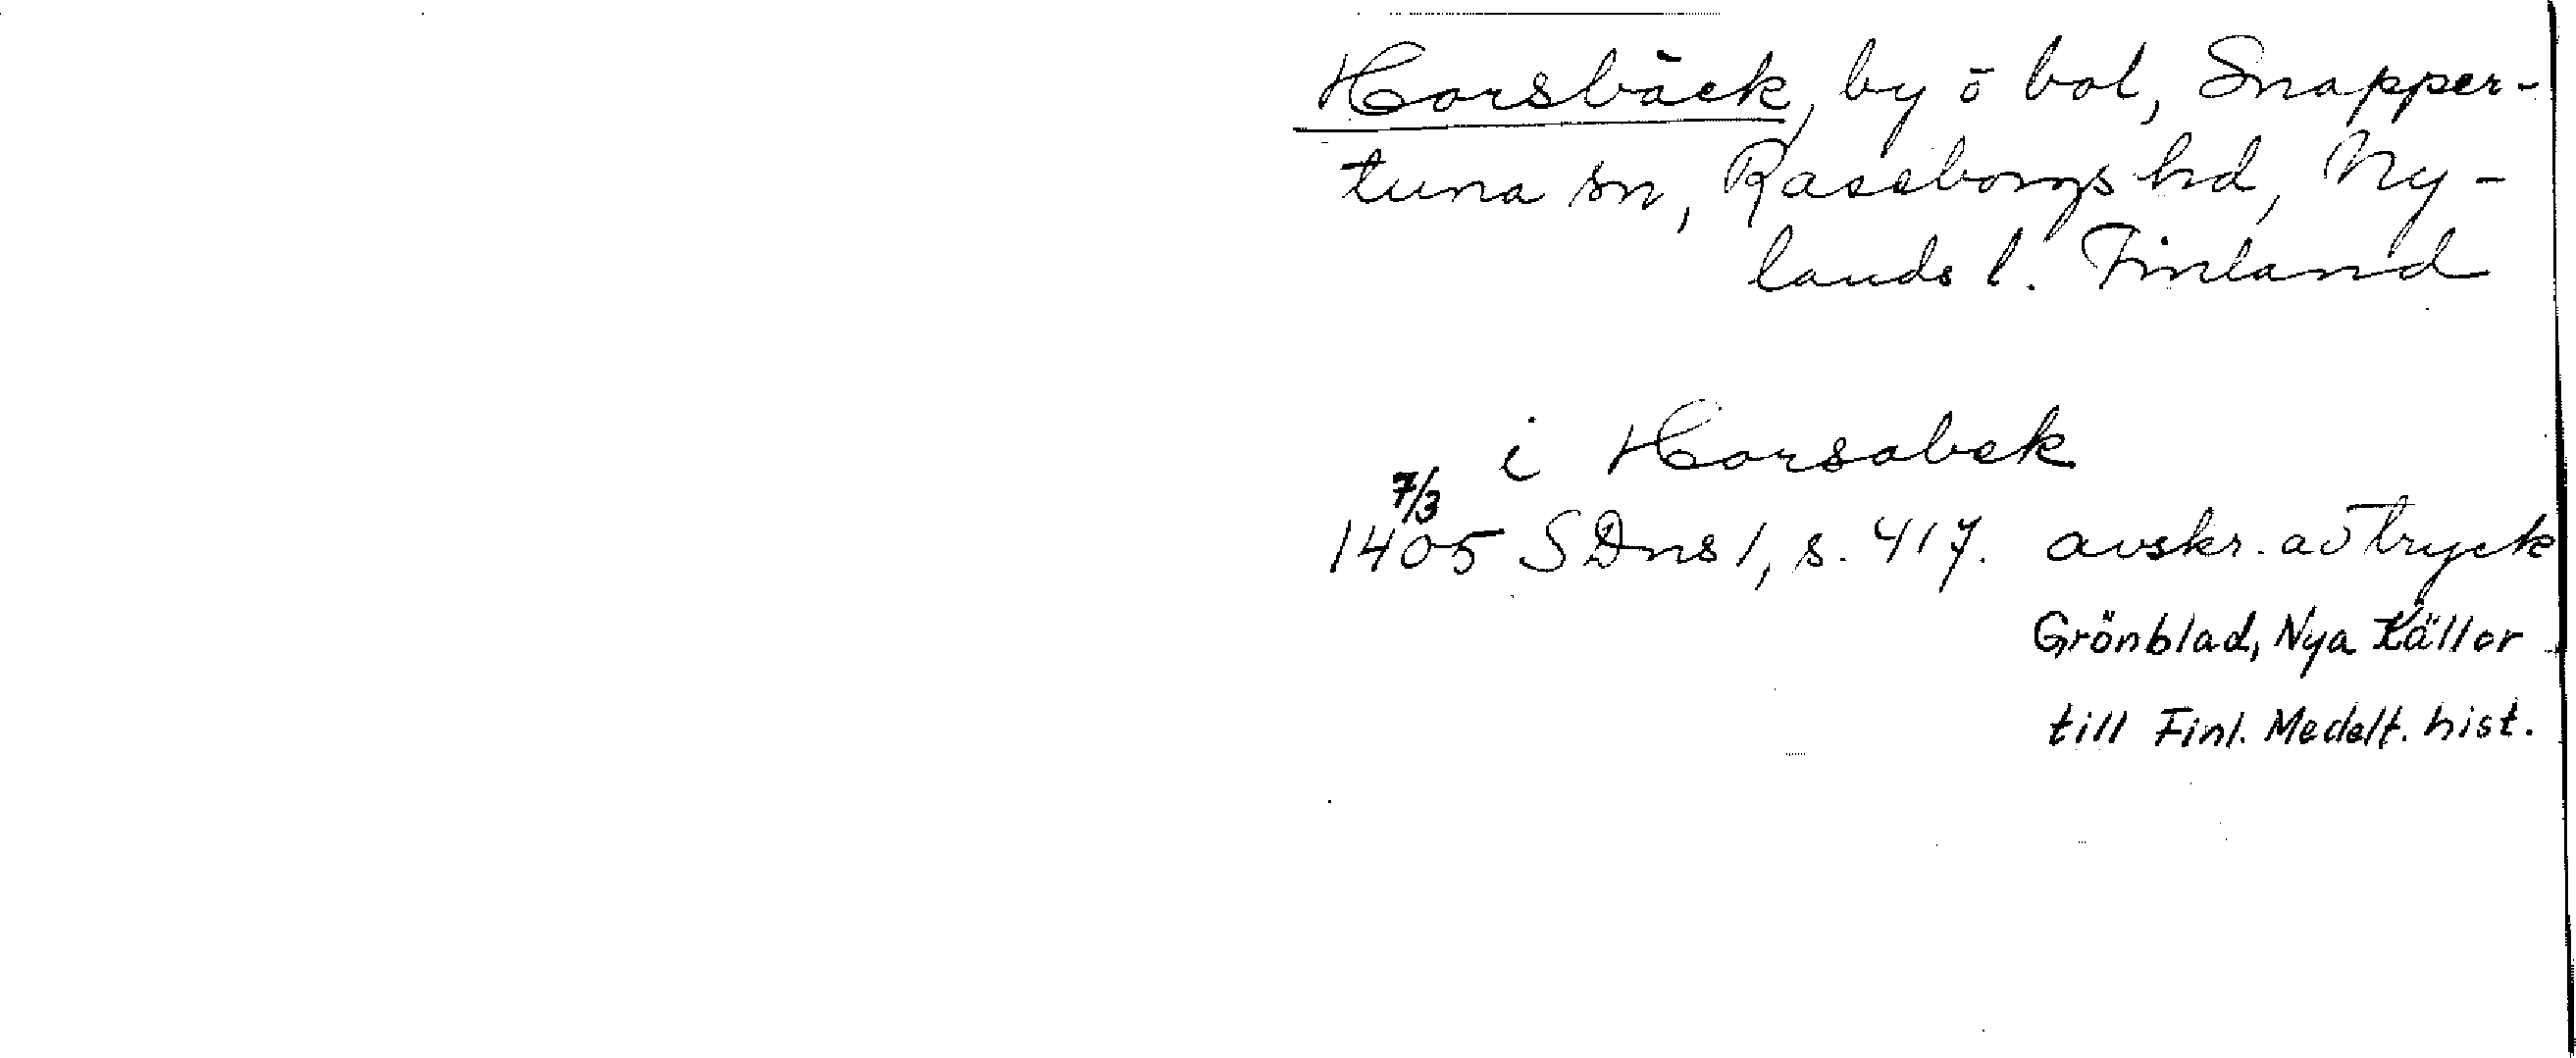 Horsbäck, by o bol, Snapper-
tuna sn, Raseborgs hd, Ny-
lands l. Finland
i Horsabek
7/3
1405 SDns 1, s. 417. avskr. av tryck
Grönblad, Nya Källor
till Finl. Medelt. hist.